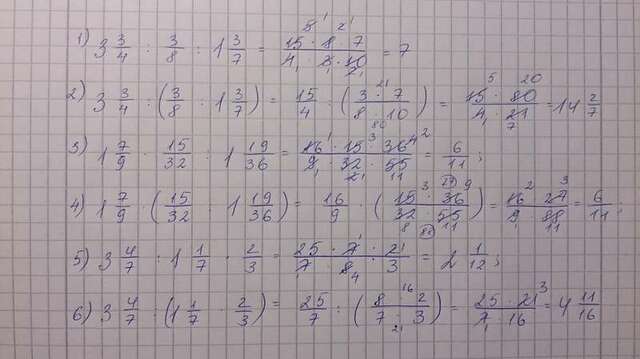 1) 3 3/4 : 3/8 : 1 3/7 = 15 · 8 · 7 / 4 · 3 · 10 = 7
2) 3 3/4 : (3/8 : 1 3/7) = 15/4 : (3 · 7 / 8 · 10) = 15 · 80 / 4 · 21 = 14 2/7
3) 1 7/9 · 15/32 : 1 19/36 = 16 · 15 · 36 / 9 · 32 · 55 = 6/11 ;
4) 1 7/9 · (15/32 : 1 19/36) = 16/9 · (15 · 36 / 32 · 55) = 16 · 27 / 9 · 88 = 6/11 ;
5) 3 4/7 : 1 1/7 · 2/3 = 25 · 7 · 2 / 7 · 8 · 3 = 2 1/12 ;
6) 3 4/7 : (1 1/7 · 2/3) = 25/7 : (8 · 2 / 7 · 3) = 25 · 21 / 7 · 16 = 4 11/16